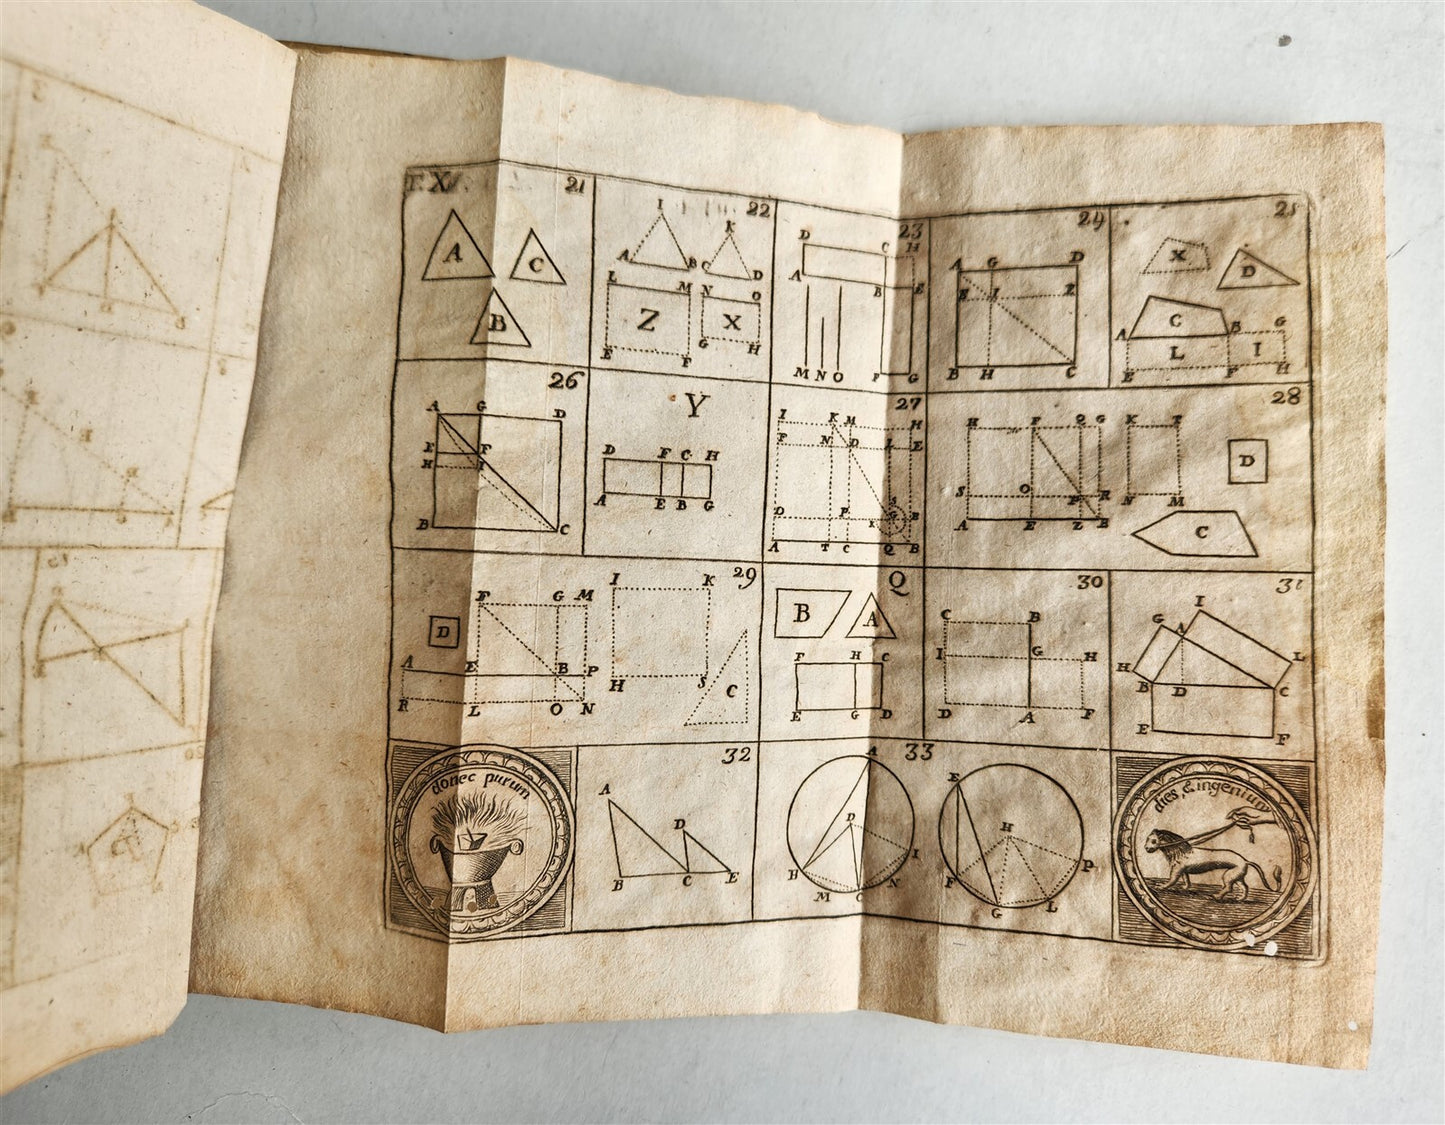 21
A
C
B
22
I
K
A B C D
L M N O
Z X
E F G H
23
D C H
A B E
M N O F G
24
A G D
E I Z
B H C
25
X
D
C
A B G
L I
E F H
26
A G D
E F
H I
B C
Y
D F C H
A E B G
27
I K M H
F N D L E
S
D P G B
A T C Q B
28
H F Q G K T
D
S O P R N M
A E Z B
C
29
F G M I K
D
A E B P
H S C
R L O N
Q
B A
F H C
E G D
30
C B
I G H
D A F
31
I
G A
H L
B D C
E F
donec purum
32
A
D
B C E
33
A
D
I
H
M C N
E
H
P
F
G L
dies, & ingenium